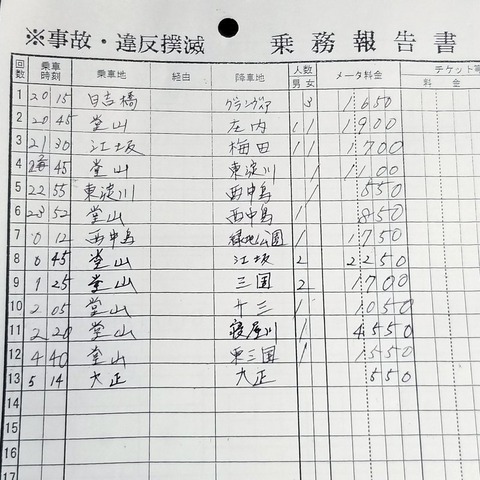 ※事故・違反撲滅 乗務報告書
回数 乗車時刻 乗車地 経由 降車地 人数 男 女 メータ料金 チケット等 料金
1 20 15 日吉橋 グランヴィア 3 1650
2 20 45 堂山 庄内 1 1 1900
3 21 30 江坂 梅田 1 1 1700
4 45 堂山 東淀川 1 1100
5 22 55 東淀川 西中島 1 550
6 23 52 堂山 西中島 1 1 850
7 0 12 西中島 緑地公園 1 1 1750
8 0 45 堂山 江坂 2 2250
9 1 25 堂山 三国 2 1700
10 2 05 堂山 十三 1 1050
11 2 20 堂山 寝屋川 1 4550
12 4 40 堂山 東三国 1 1550
13 5 14 大正 大正 550
14
15
16
17